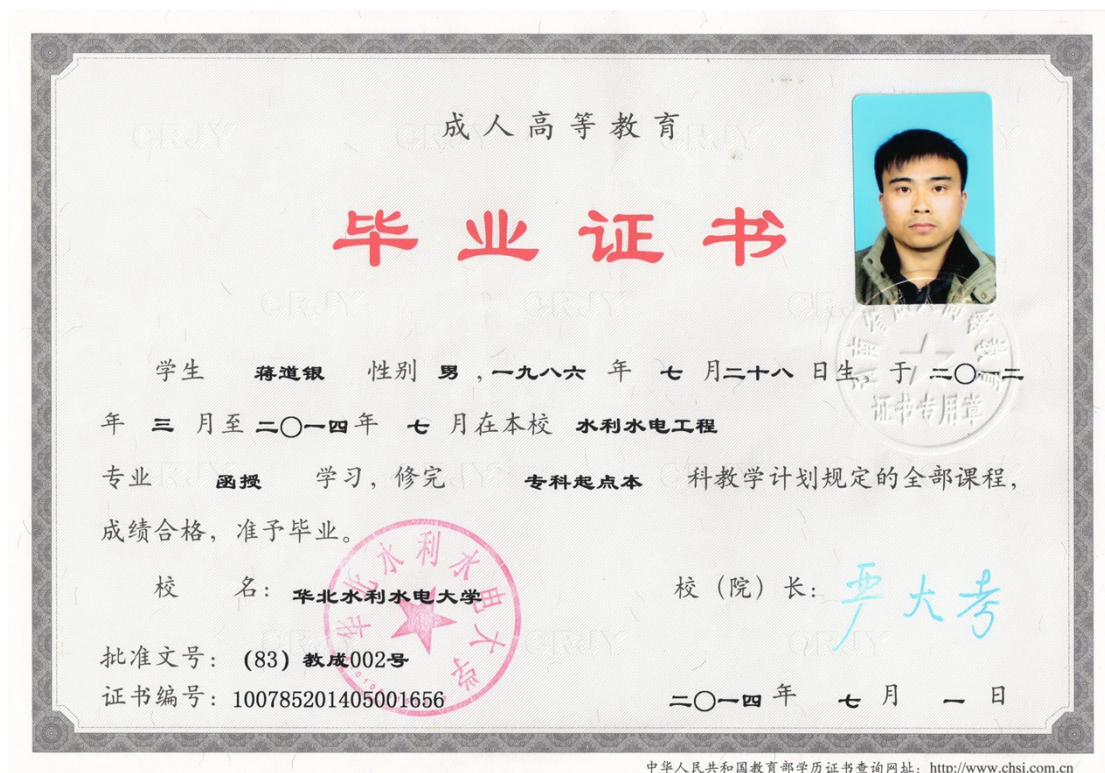 成人高等教育
毕业证书
学生 蒋道银 性别 男 ,一九八六 年 七 月二十八 日生，于 二〇一二
年 三 月至 二〇一四年 七 月在本校 水利水电工程
专业 函授 学习，修完 专科起点本 科教学计划规定的全部课程，
成绩合格，准予毕业。
校 名：华北水利水电大学
校（院）长：严大考
批准文号：(83) 教成002号
证书编号：100785201405001656
二〇一四 年 七 月 一 日
华北水利水电大学
证书专用章
CRJY
中华人民共和国教育部学历证书查询网址：http://www.chsi.com.cn